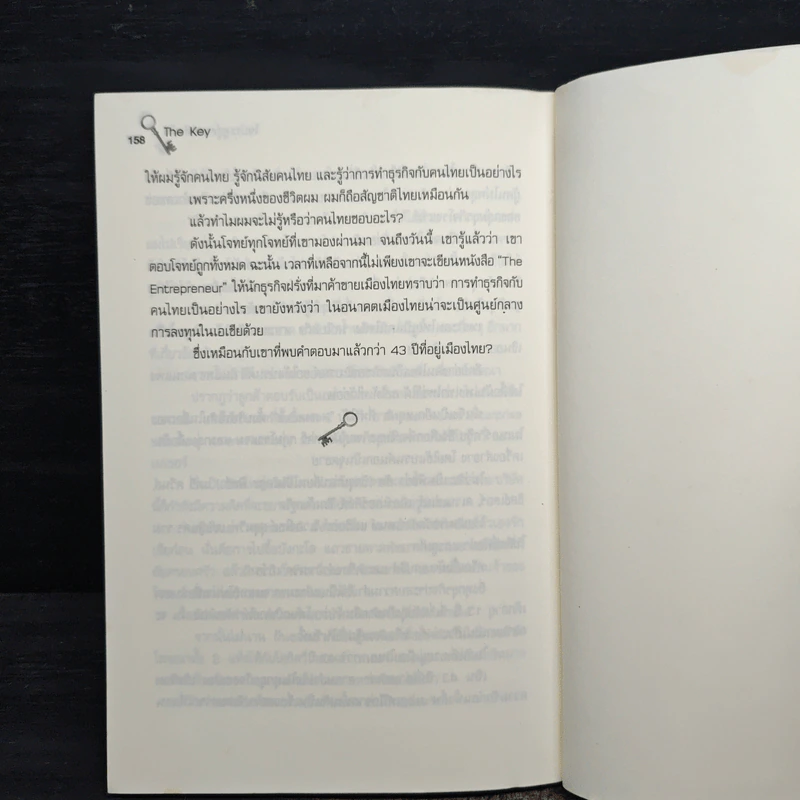 158
The Key
ให้ผมรู้จักคนไทย รู้จักนิสัยคนไทย และรู้ว่าการทำธุรกิจกับคนไทยเป็นอย่างไร
เพราะครึ่งหนึ่งของชีวิตผม ผมก็ถือสัญชาติไทยเหมือนกัน
แล้วทำไมผมจะไม่รู้หรือว่าคนไทยชอบอะไร?
ดังนั้นโจทย์ทุกโจทย์ที่เขามองผ่านมา จนถึงวันนี้ เขารู้แล้วว่า เขา
ตอบโจทย์ถูกทั้งหมด ฉะนั้น เวลาที่เหลือจากนี้ไม่เพียงเขาจะเขียนหนังสือ "The
Entrepreneur" ให้นักธุรกิจฝรั่งที่มาค้าขายเมืองไทยทราบว่า การทำธุรกิจกับ
คนไทยเป็นอย่างไร เขายังหวังว่า ในอนาคตเมืองไทยน่าจะเป็นศูนย์กลาง
การลงทุนในเอเชียด้วย
ซึ่งเหมือนกับเขาที่พบคำตอบมาแล้วกว่า 43 ปีที่อยู่เมืองไทย?